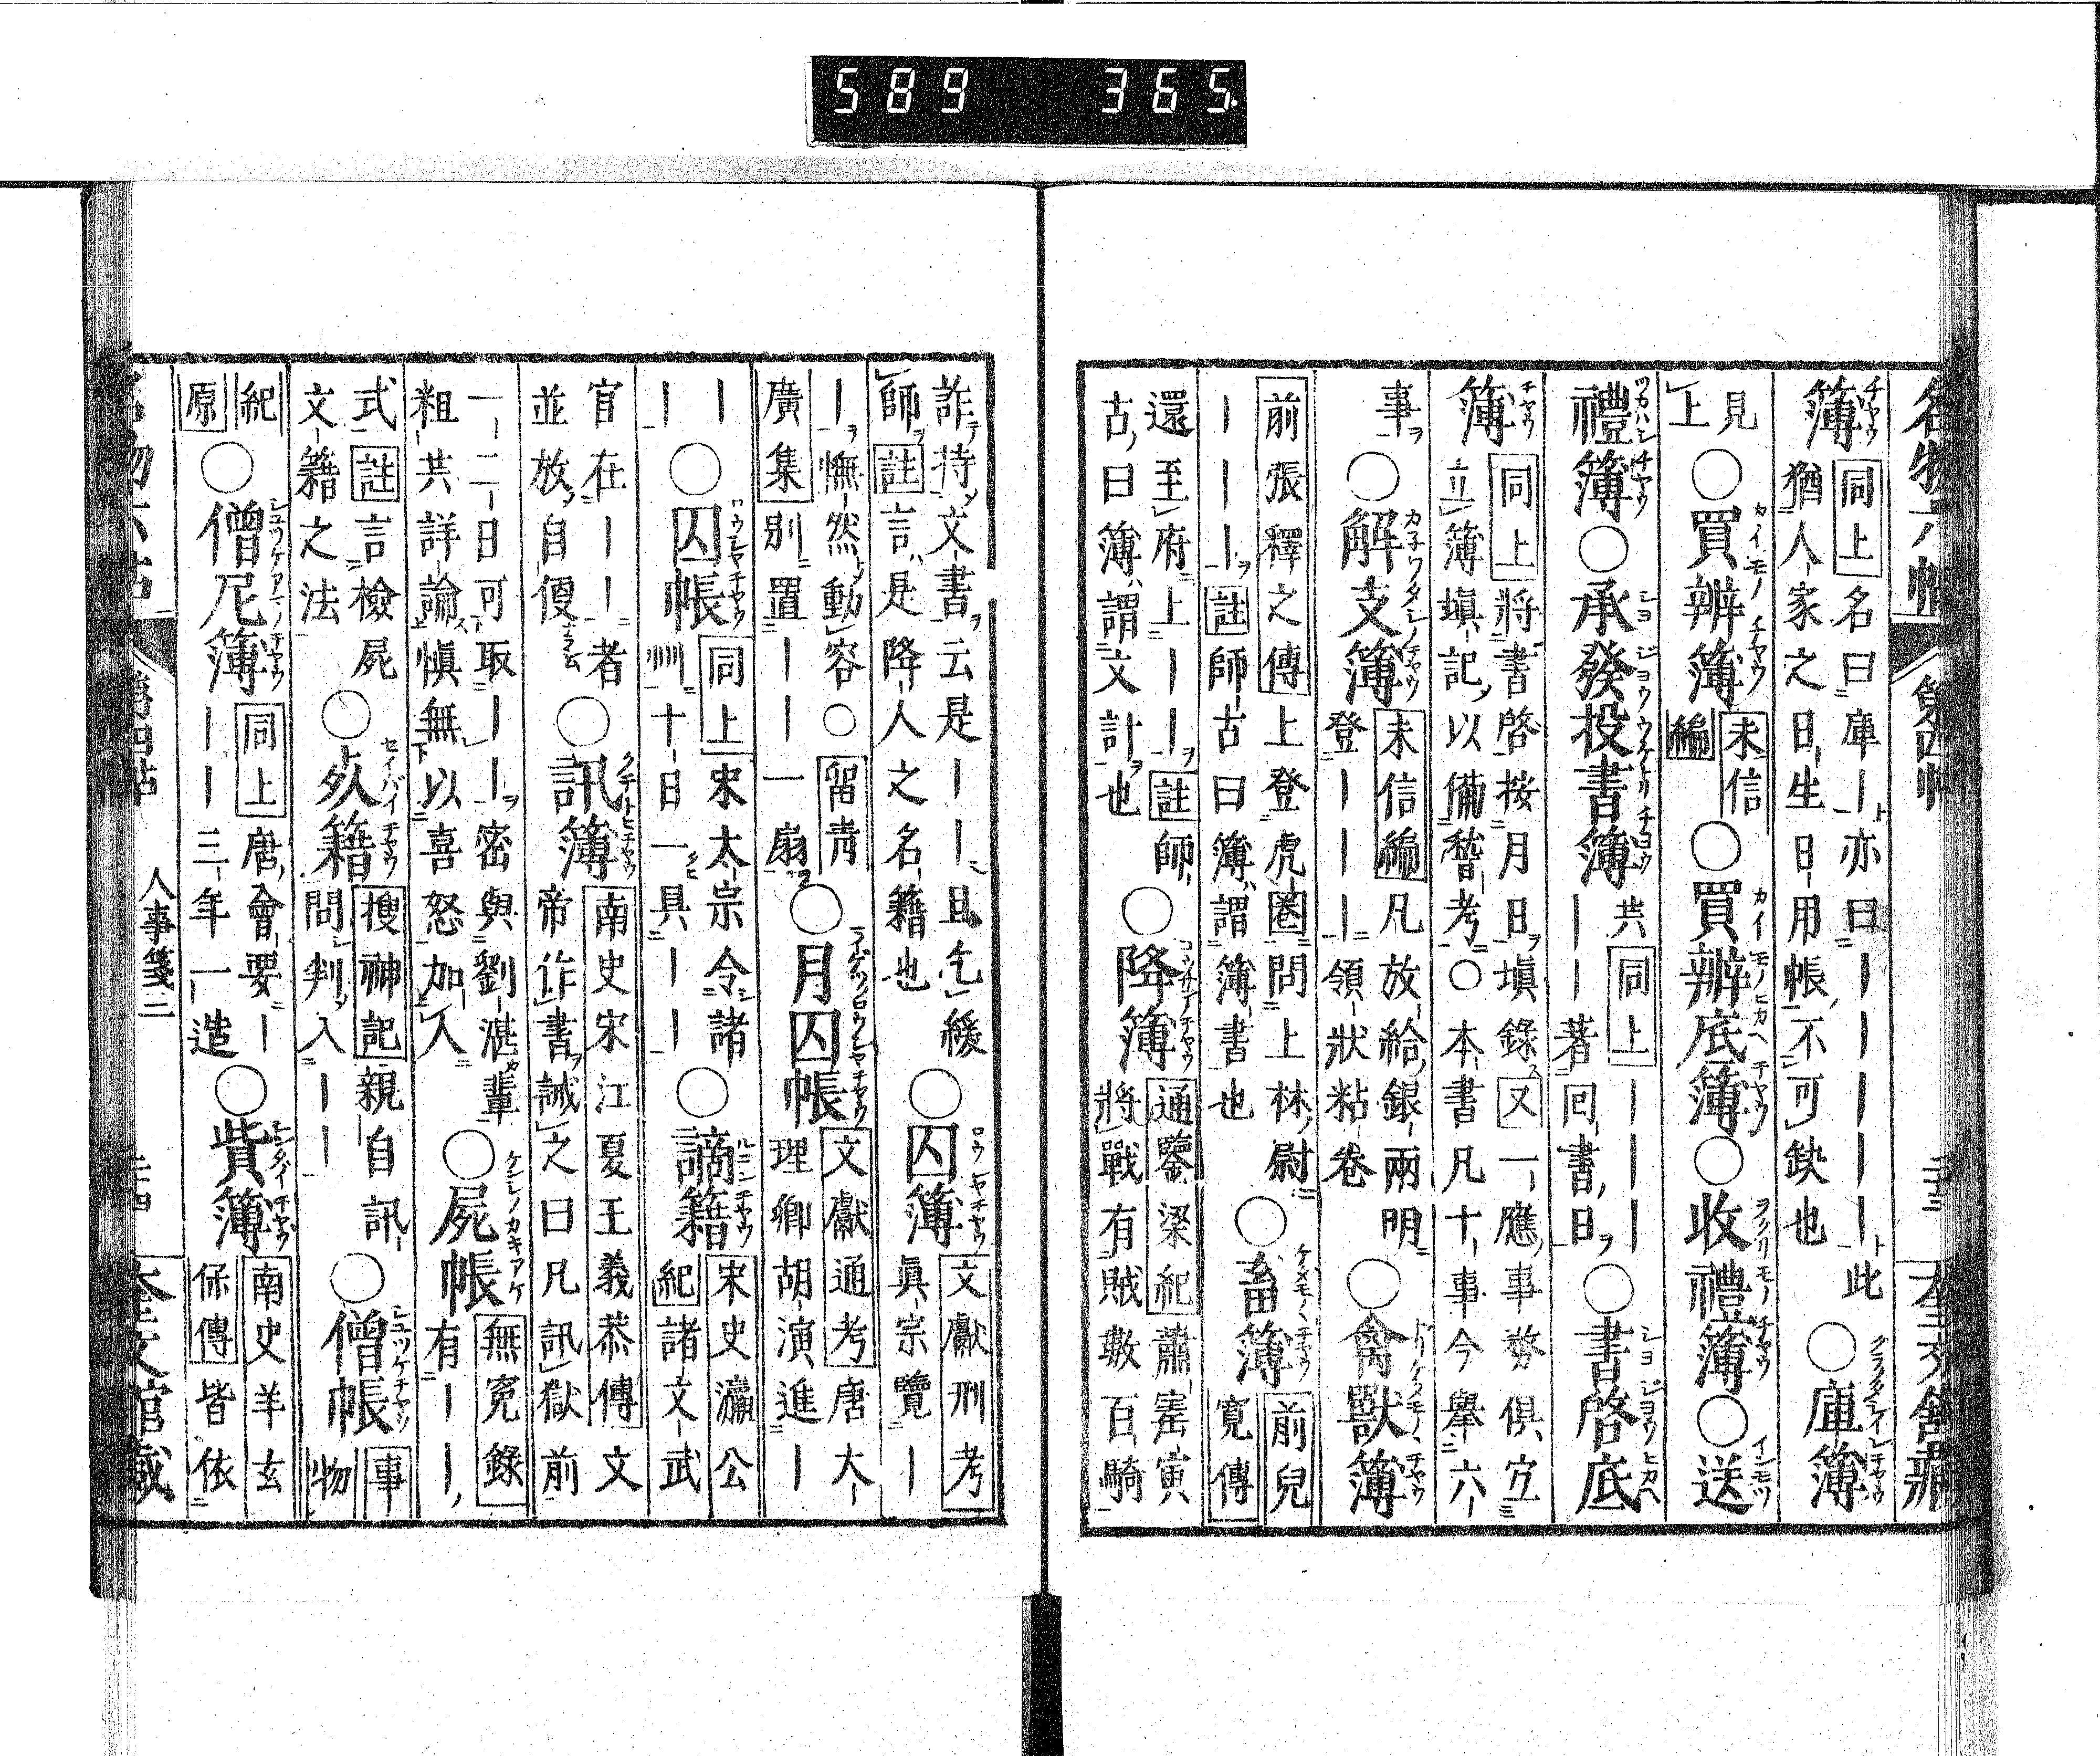 589 365.
名物六帖 第四帖 奎文館藏
簿 同上 名曰庫｜亦曰｜｜｜｜｜此
猶人家之日生日用帳不可缺也 ○庫簿
見上 ○買辨簿 未信編 ○買辨底簿 ○收禮簿 ○送
禮簿 ○承發投書簿 共同上｜｜｜｜
｜｜著囘書日 ○書啓底
簿 同上 將書啓按月日塡錄 又 一應事務俱宜
立簿塡記以備稽考○本書凡十事今舉六
事 ○解支簿 未信編 凡放給銀兩明
登｜｜｜領狀粘卷 ○禽獸簿
前張釋之傳 上登虎圈問上林尉
｜｜｜｜註 師古曰簿謂簿書也 ○畜簿 前兒寬傳
還至府上｜｜註 師
古曰簿謂文計也 ○降簿 通鑒梁紀 蕭寶寅
將戰有賊數百騎
詐持文書云是｜｜且乞緩
師 註 言是降人之名籍也 ○囚簿 文獻刑考
眞宗覽｜
｜憮然動容○ 留靑
廣集 別置｜｜一扇 ○月囚帳 文獻通考 唐大
理卿胡演進｜
｜｜ ○囚帳 同上 宋太宗令諸
州十日一具｜｜ ○謫籍 宋史瀛公
紀 諸文武
官在｜｜者
並放自便 ○訊簿 南史宋江夏王義恭傳 文
帝作書誡之曰凡訊獄前
一二日可取｜｜密與劉湛輩
粗共詳論愼無以喜怒加人 ○屍帳 無寃錄
有｜｜
式 註 言檢屍
文籍之法 ○ 籍 搜神記 親自訊
問判入｜｜ ○僧帳 事物
紀原 ○僧尼簿 同上 唐會要｜
｜｜三年一造 ○貲簿 南史羊玄
保傳 皆依
第四帖 人事箋二 奎文館藏